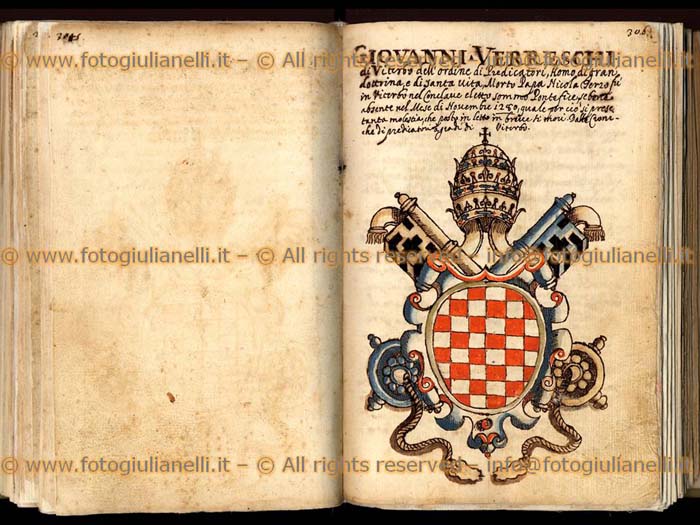 306
GIOVANNI VERRESCHI
di Viterbo dell'ordine di Predicatori, Homo di gran
dottrina, e di Santa Vita, Morto Papa Nicola Terzo fu
in Viterbo nel Conclave eletto sommo Pontefice, se bene
absente nel Mese di Novembre 1280, quale per ciò si prese
tanta molestia, che posto in letto in breve si morì. Dalle Croni-
che di predicatori di Viterbo.
www.fotogiulianelli.it – © All rights reserved – info@fotogiulianelli.it – © A
www.fotogiulianelli.it – © All rights reserved – info@fotogiulianelli.it
www.fotogiulianelli.it – © All rights reserved – info@fotogiulianelli.it